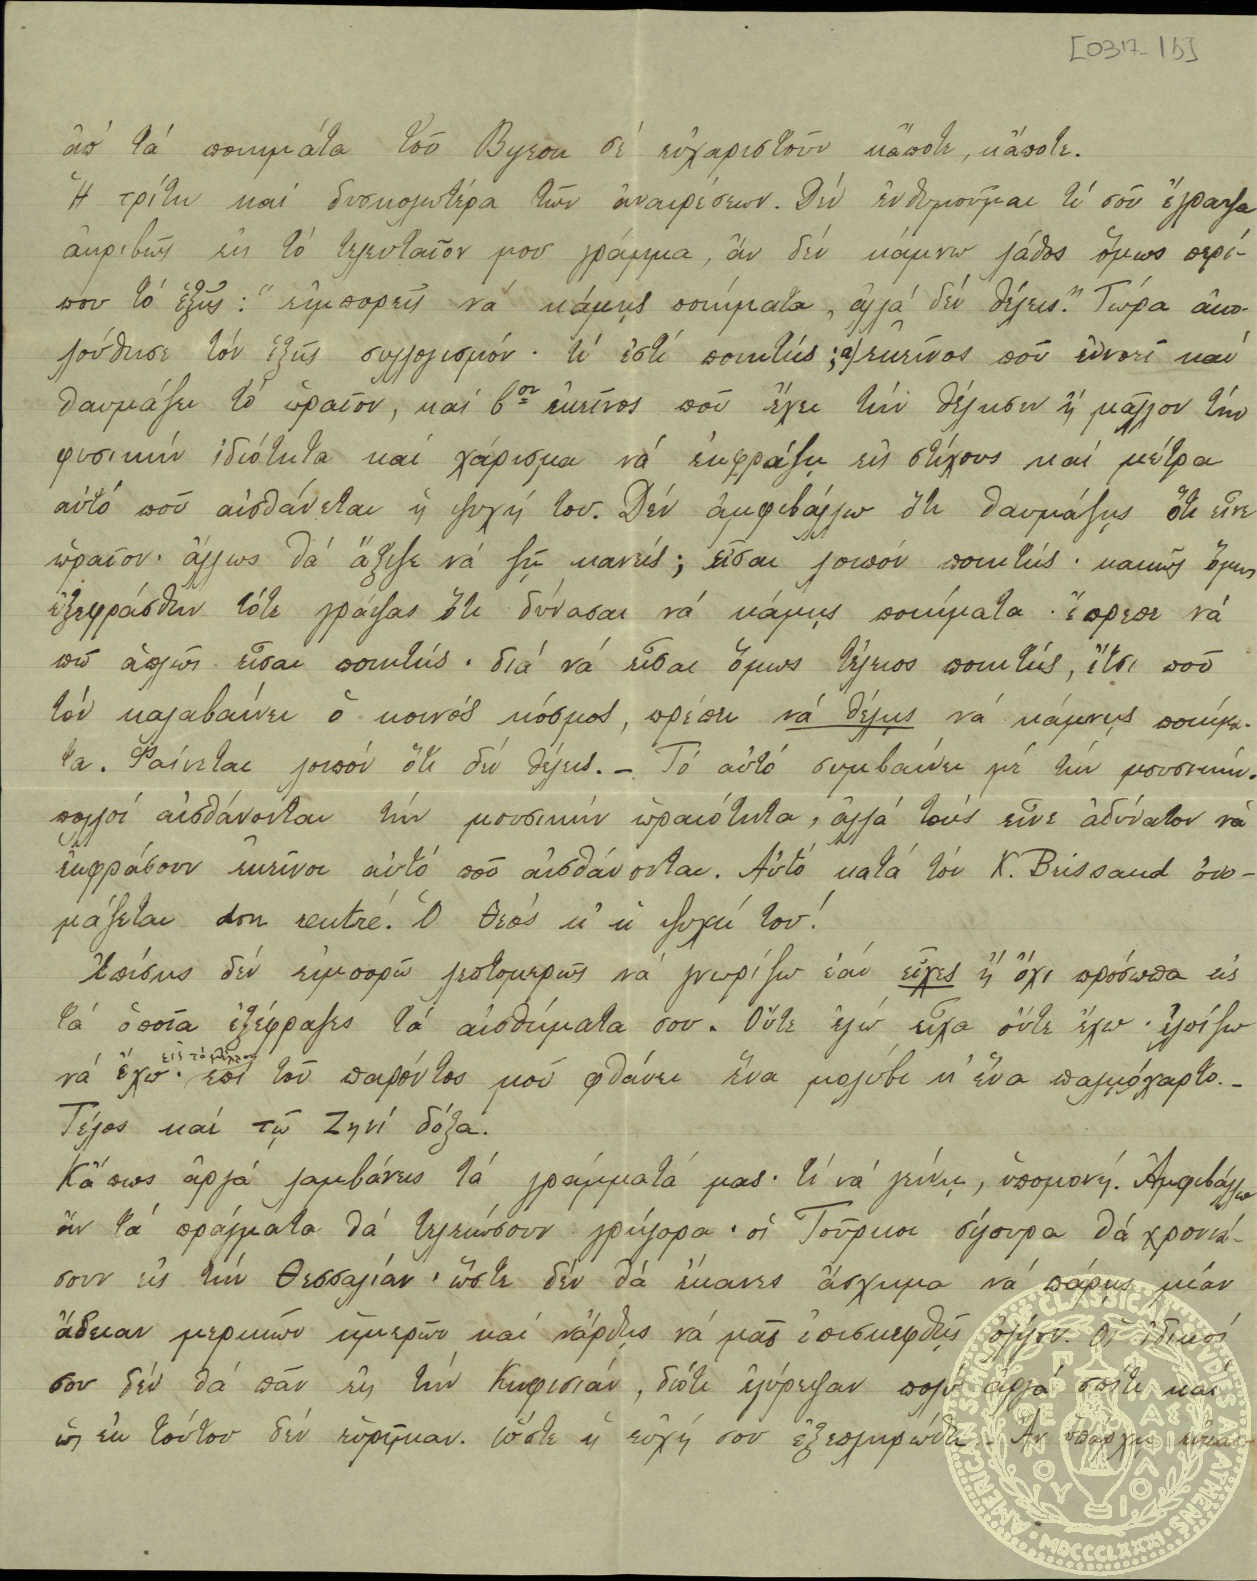 [0317-15]
ἀπ' τά ποιημάτα τοῦ Byron σέ εὐχαριστοῦν κάποτε, κάποτε.
Ἡ τρίτη καί δυσκολωτέρα τῶν ἀναιρέσεων. Δέν ἐνθυμοῦμαι τί σοῦ ἔγραψα
ἀκριβῶς εἰς τό τελευταῖον μου γράμμα, ἄν δέν κάμνω λάθος ὅμως περί-
που τό ἑξῆς: "εἰμπορεῖς νά κάμῃς ποιήματα, ἀλλά δέν θέλεις." Τώρα ἀκο-
λούθησε τόν ἑξῆς συλλογισμόν· τί ἐστί ποιητής; α) ἐκεῖνος ποῦ ἐννοεῖ καί
θαυμάζει τό ὡραῖον, καί βον ἐκεῖνος ποῦ ἔχει τήν θέλησιν ἤ μᾶλλον τήν
φυσικήν ἰδιότητα καί χάρισμα νά ἐκφράζῃ εἰς στίχους καί μέτρα
αὐτό ποῦ αἰσθάνεται ἡ ψυχή του. Δέν ἀμφιβάλλω ὅτι θαυμάζεις ὅτι εἶνε
ὡραῖον· ἄλλως θά ἄξιζε νά ζῇ κανείς; εἶσαι λοιπόν ποιητής· κακῶς ὅμως
ἐξεφράσθην τότε γράψας ὅτι δύνασαι νά κάμῃς ποιήματα· ἔπρεπε νά
πῶ ἁπλῶς εἶσαι ποιητής· διά νά εἶσαι ὅμως τέλειος ποιητής, ἔτσι ποῦ
τόν καλαβαίνει ὁ κοινός κόσμος, πρέπει νά θέλῃς νά κάμνῃς ποιήμα-
τα. Φαίνεται λοιπόν ὅτι δέν θέλεις. – Τό αὐτό συμβαίνει μέ τήν μουσικήν.
πολλοί αἰσθάνονται τήν μουσικήν ὡραιότητα, ἀλλά τούς εἶνε ἀδύνατον νά
ἐκφράσουν ἐκεῖνοι αὐτό ποῦ αἰσθάνονται. Αὐτό κατά τόν Κ. Brissaud ὀνο-
μάζεται don rentré. Ὁ Θεός κ' ἡ ψυχή του!
Ἐπίσης δέν εἰμπορῶ λεπτομερῶς νά γνωρίζω ἐάν εἶχες ἤ ὄχι πρόσωπα εἰς
τά ὁποῖα ἐξέφραζες τά αἰσθήματα σου. Οὔτε ἐγώ εἶχα οὔτε ἔχω· ἐλπίζω
νά ἔχω εἰς τό μέλλον· ἐπί τοῦ παρόντος μοῦ φθάνει ἕνα μολύβι κ' ἕνα παληόχαρτο. –
Τέλος καί τῷ Ζηνί δόξα.
Κάπως ἀργά λαμβάνεις τά γράμματά μας· τί νά γείνῃ, ὑπομονή. Ἀμφιβάλλω
ἄν τά πράγματα θά τελειώσουν γρήγορα· οἱ Τοῦρκοι σίγουρα θά χρονιά-
σουν εἰς τήν Θεσσαλίαν· ὥστε δέν θά ἔκανες ἄσχημα νά πάρῃς μίαν
ἄδειαν μερικῶν ἡμερῶν καί νἄρθῃς νά μᾶς ἐπισκεφθῇς ὀλίγον. Οἱ ἰδικοί
σου δέν θά πᾶν εἰς τήν Κηφισιάν, διότι ἐγύρεψαν πολύ ἀργά σπίτι καί
ὡς ἐκ τούτου δέν εὑρῆκαν. ὥστε ἡ εὐχή σου ἐξεπληρώθη. – Ἄν ὑπάρχῃ
AMERICAN SCHOOL OF CLASSICAL STUDIES AT ATHENS
MDCCCLXXXI
ΠΑΡΘΕΝΟΥ ΦΙΛΑΣ ΦΙΛΟΙ